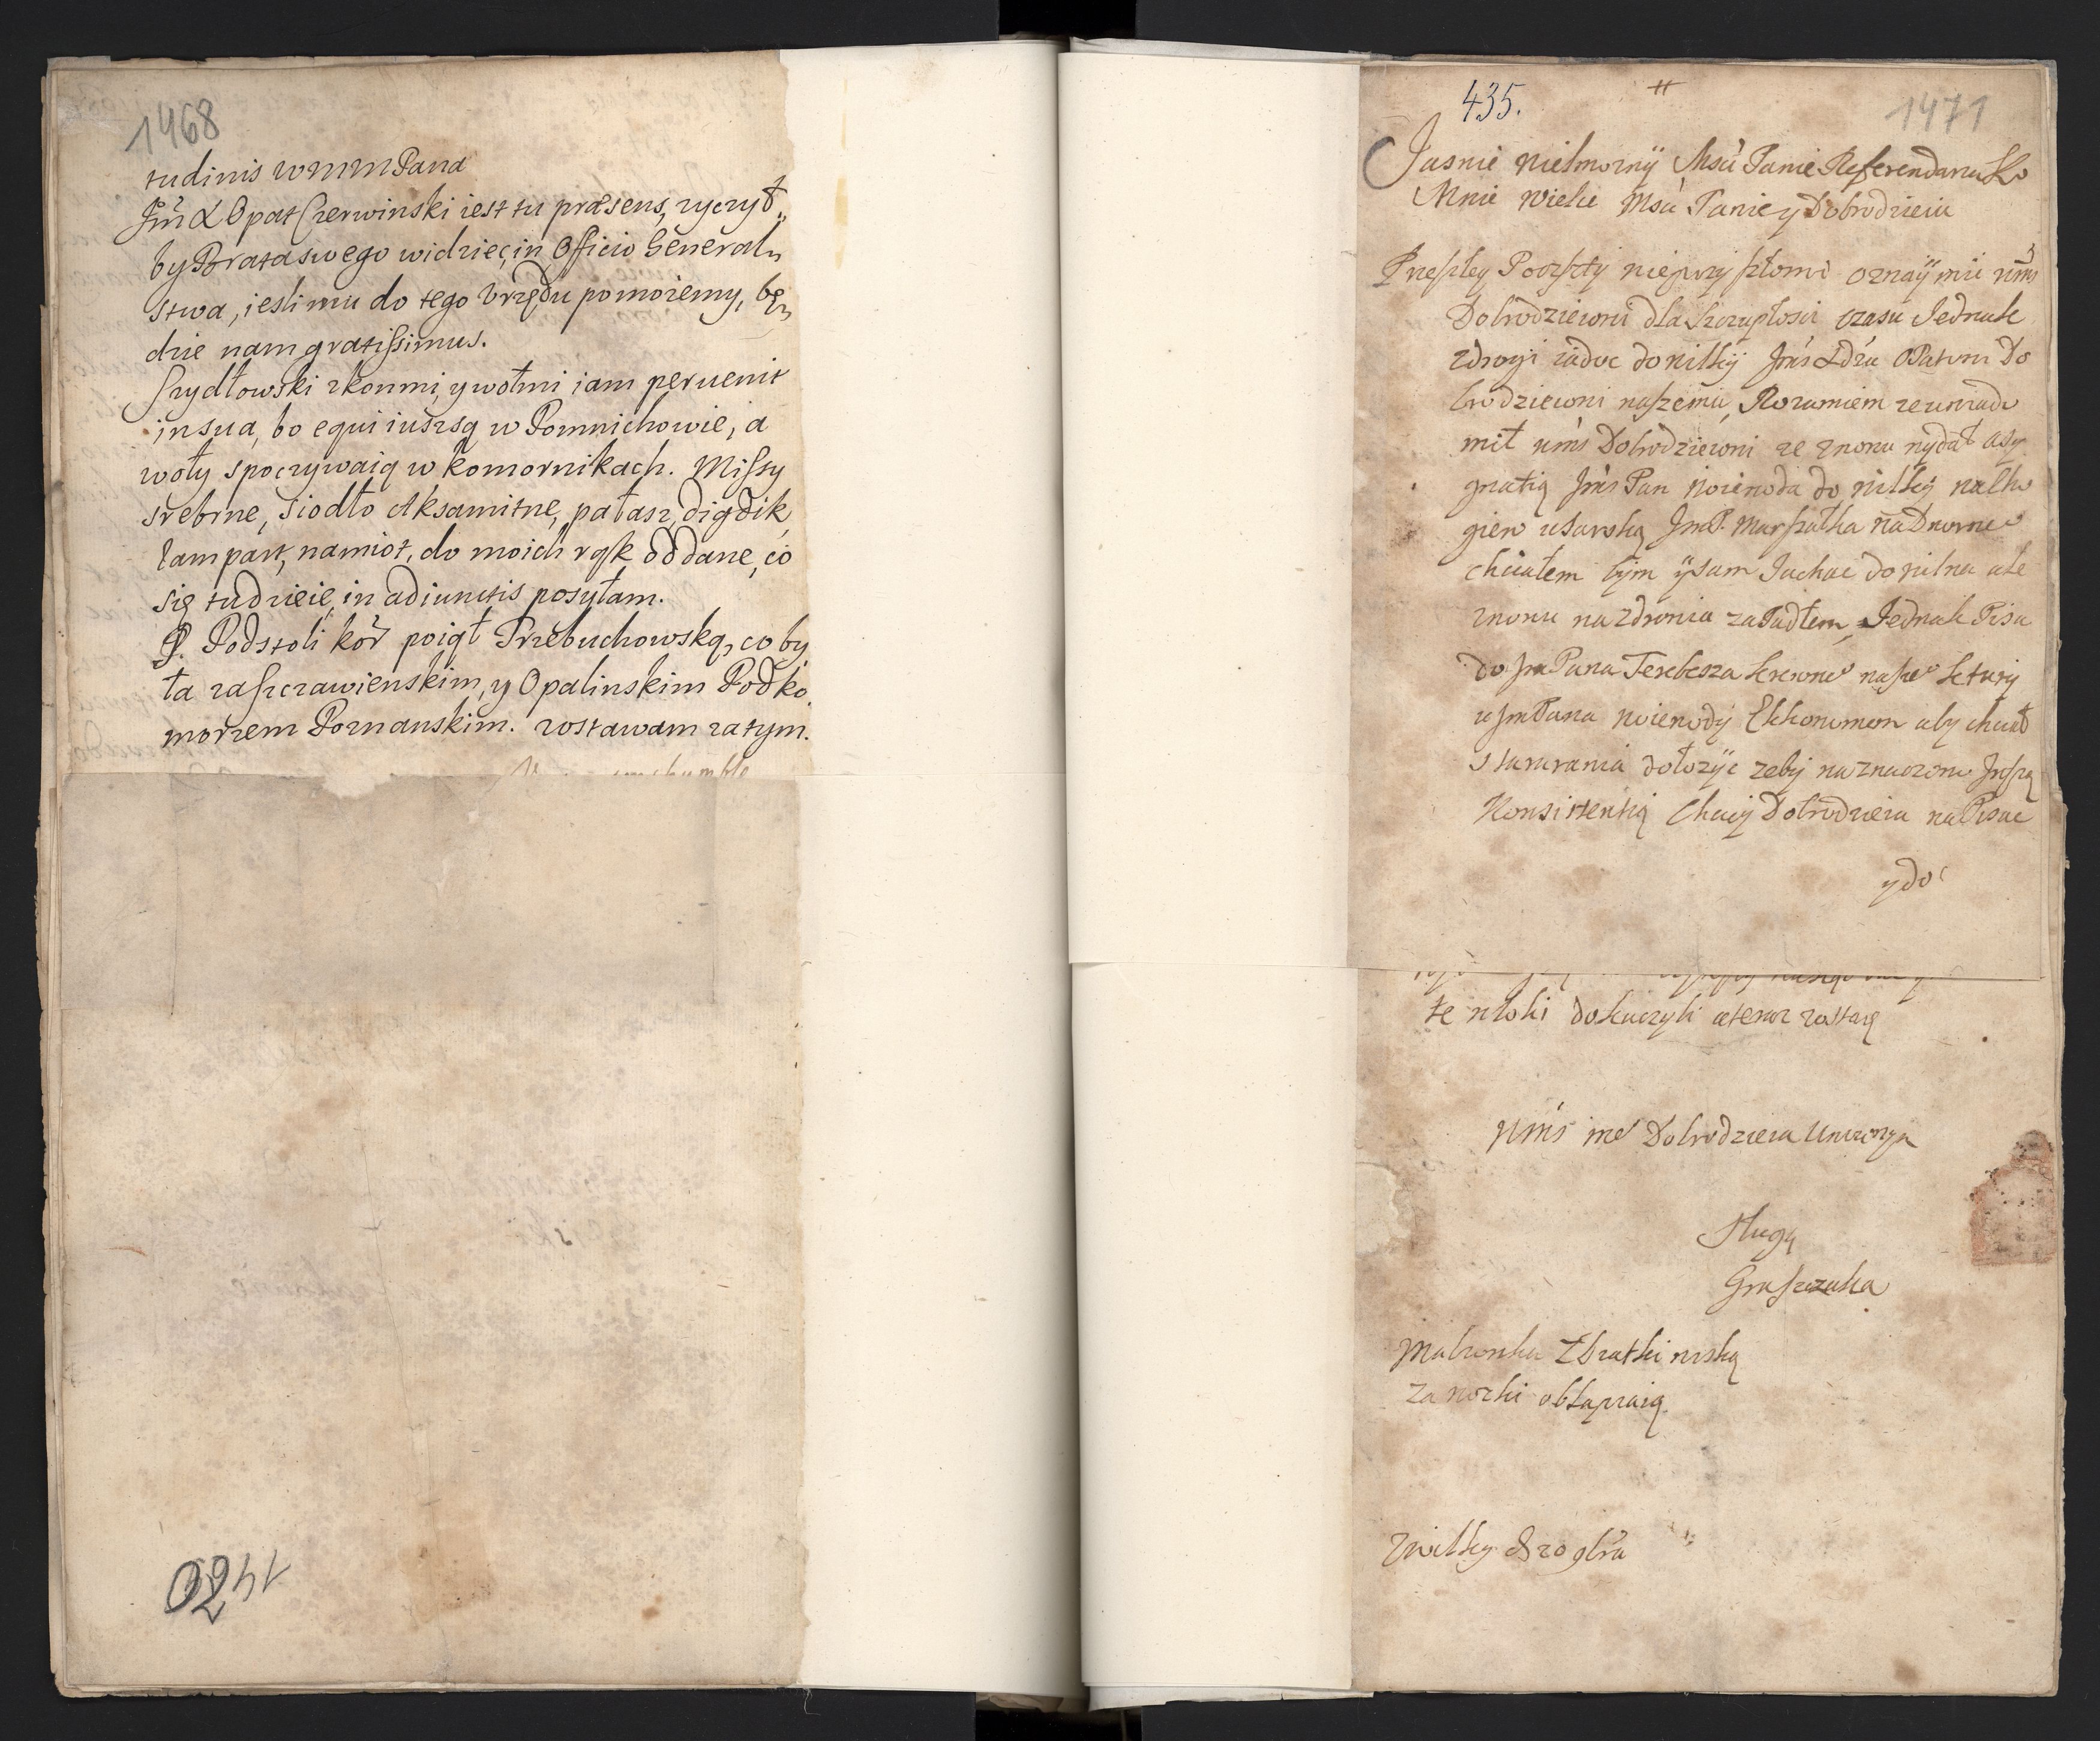 1468
tudinis WMMPana
Jm̃ X Opat Czerwinski iest tu præsens, zyczył„
by Brata swego widziec, in Officio General„
stwa, iesli mu do tego Vrzędu pomożemy, bę„
dzie nam gratissimus.
Szydłowski z konmi, y wołmi iam peruenit
in sua, bo equi iusz są w Pomnichowie, a
woły spoczywaią w komornikach. Missy
srebrne, siodło Aksamitne, pałasz, digdik,
lampart, namiot, do moich rąk oddane, co
się tu dzieie, in adiunctis posyłam.
P. Podstoli kor̃ poiął Przebuchowską, co by
ła za Szczawienskim, y Opalinskim Podko
morzem Poznanskim. zostawam zatym.
1470
435.
1471
Jasnie Wielmozny Msci Panie Referendarzu
Mnie Wielce Msci Panie y Dobrodzieiu
Przeszłey Poczty nie przyszło mi oznaÿmic wm̃s
Dobrodzieiowi dla szczupłosci czasu Jednak
z drogi iadoc do Wilkÿ
brodzieiowi naszemu, Rozumiem ze uwiado
mił wm̃s Dobrodzieiowi ze znowu wydał asy
gnatią Jm̃s Pan Woiewoda do Wilkÿ na cho
giew usarską JmP. Marszałka nadworne°
chciałem tÿm ÿ sam Jachac do Wilna ale
znowu na zdrowiu zapadłem, Jednak Pisa
do Jm Pana Terebesza krewne° nasze° kturÿ
u Jm Pana Woiewodÿ Ekkonomem aby chciał
starania dołozÿc zebÿ naznaczono Jnszą
Konsistentią Chciÿ Dobrodzieiu na Pisac
y do
te włoki dokuczyli a teraz zostaię
Wm̃s me° Dobrodzieia Unizonym
Sługą
Gruszczaka
Małzonka z Bratki
za nozki obłapiaią.
z Wilkÿ